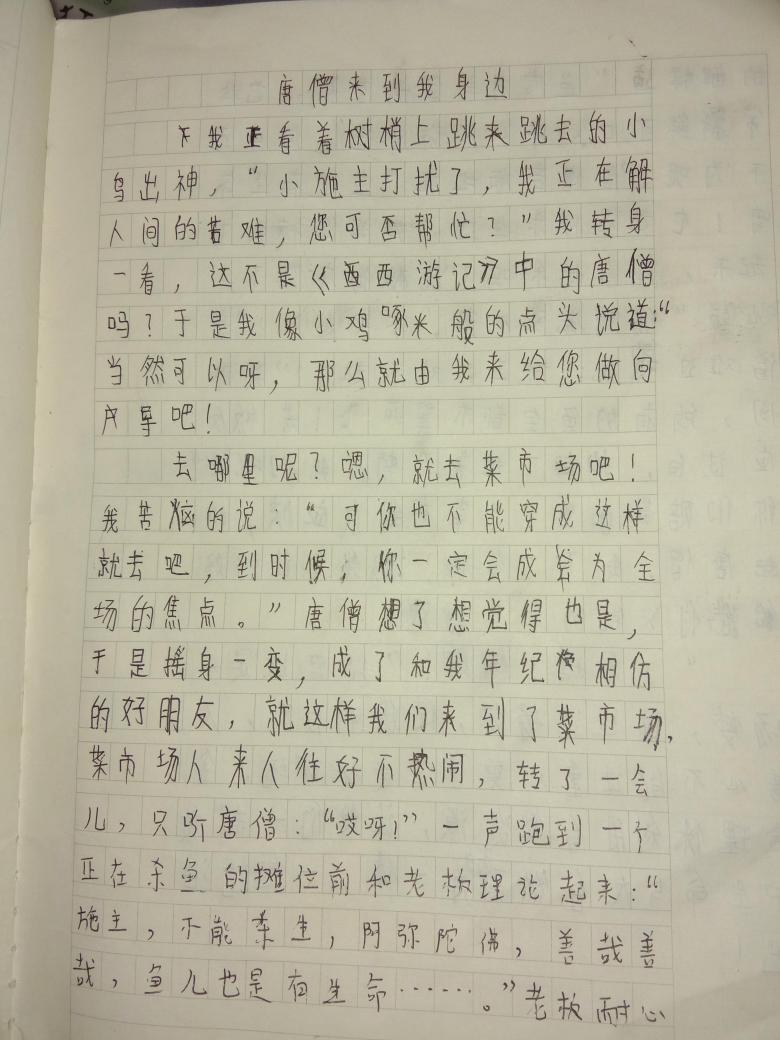 唐僧来到我身边
我正看着树梢上跳来跳去的小
鸟出神，“小施主打扰了，我正在解
人间的苦难，您可否帮忙？”我转身
一看，这不是《西游记》中的唐僧
吗？于是我像小鸡啄米般的点头说道：“
当然可以呀，那么就由我来给您做向
导吧！
去哪里呢？嗯，就去菜市场吧！
我苦恼的说：“可你也不能穿成这样
就去吧，到时候，你一定会成为全
场的焦点。”唐僧想了想觉得也是，
于是摇身一变，成了和我年纪相仿
的好朋友，就这样我们来到了菜市场，
菜市场人来人往好不热闹，转了一会
儿，只听唐僧：“哎呀！”一声跑到一个
正在杀鱼的摊位前和老板理论起来：“
施主，不能杀生，阿弥陀佛，善哉善
哉，鱼儿也是有生命……。”老板耐心